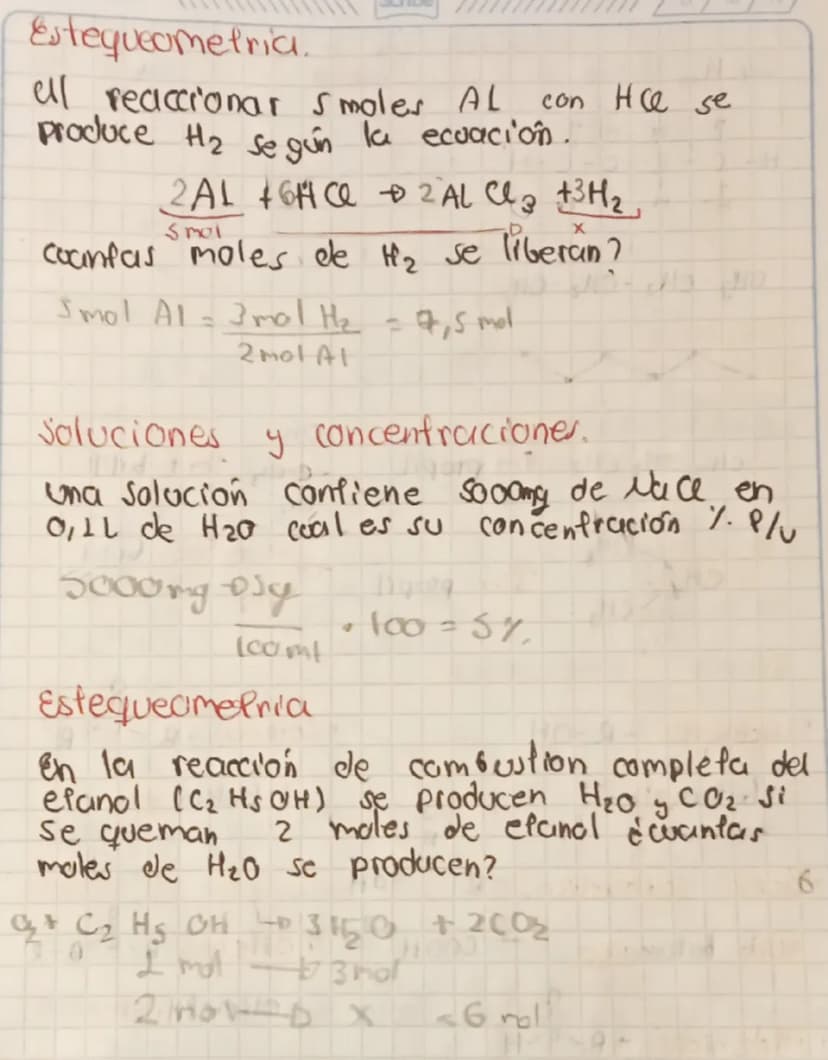 Estequeometria.
al reaccionar 5 moles AL con HCl se
produce H2 según la ecuación.
2AL + 6HCl → 2ALCl3 + 3H2
5 mol x
cuantas moles de H2 se liberan?
5 mol Al = 3 mol H2 = 7,5 mol
2 mol Al
Soluciones y concentraciones.
una solución contiene 5000mg de NaCl en
0,1L de H2O cual es su concentración % P/v
5000mg → 5g
100 ml · 100 = 5%.
Estequeometria
En la reacción de combustion completa del
etanol (C2H5OH) se producen H2O y CO2 si
se queman 2 moles de etanol ¿cuantas
moles de H2O se producen?
6
O2 + C2H5OH → 3H2O + 2CO2
1 mol → 3 mol
2 mol → x = 6 mol